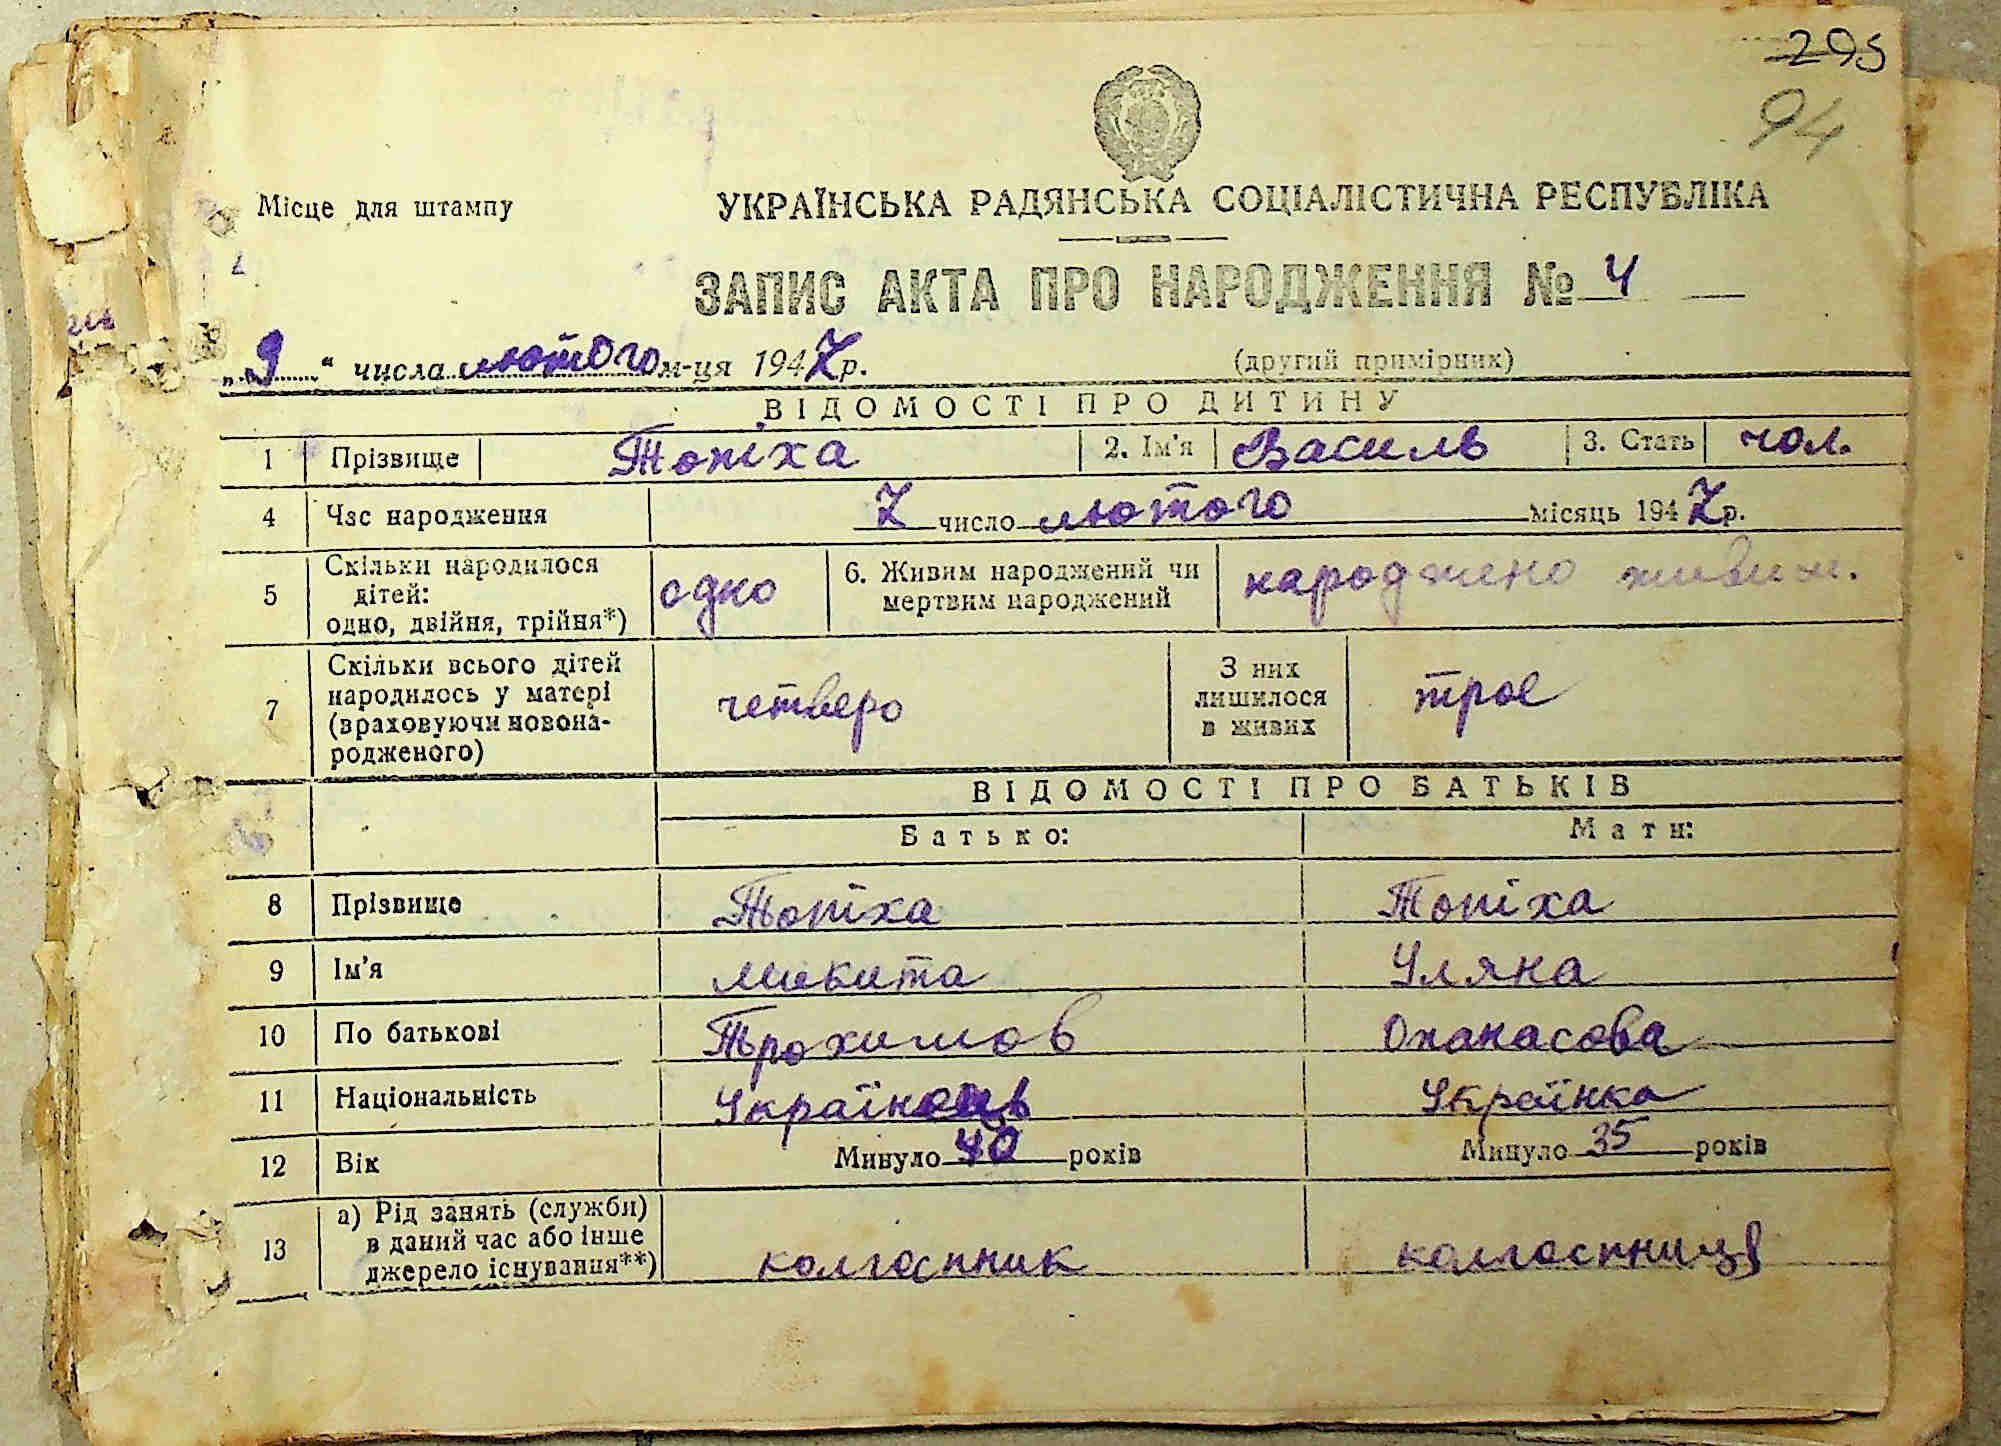 295
94
Місце для штампу
УКРАЇНСЬКА РАДЯНСЬКА СОЦІАЛІСТИЧНА РЕСПУБЛІКА
ЗАПИС АКТА ПРО НАРОДЖЕННЯ № 4
„9" числа лютого м-ця 1947 р.
(другий примірник)
ВІДОМОСТІ ПРО ДИТИНУ
1 Прізвище Топіха 2. Ім'я Василь 3. Стать чол.
4 Час народження 7 число лютого місяць 1947 р.
5 Скільки народилося дітей: одно, двійня, трійня*) одно 6. Живим народжений чи мертвим народжений народжено живим.
7 Скільки всього дітей народилось у матері (враховуючи новонародженого) четверо З них лишилося в живих троє
ВІДОМОСТІ ПРО БАТЬКІВ
Батько: Мати:
8 Прізвище Топіха Топіха
9 Ім'я Микита Уляна
10 По батькові Трохимов Опанасова
11 Національність Українець Українка
12 Вік Минуло 40 років Минуло 35 років
13 а) Рід занять (служби) в даний час або інше джерело існування**) колгоспник колгоспниця